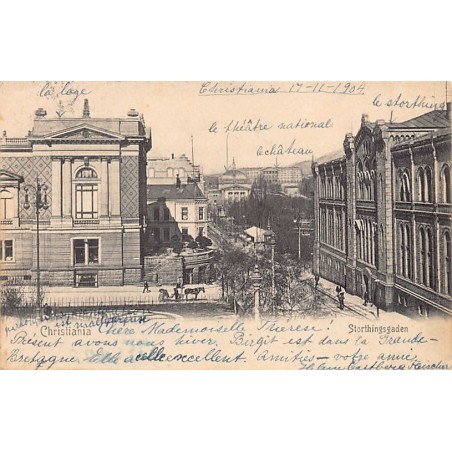 la loge
Christiania 17-11-1904
le storthing
le théâtre national
château
est malheureuse
Christiania
Storthingsgaden
chère Mademoiselle Therese!
Present avons nous hiver. Birgit est dans la Grande-
Bretagne. Elle a elle excellent. Amitiés — votre amie,